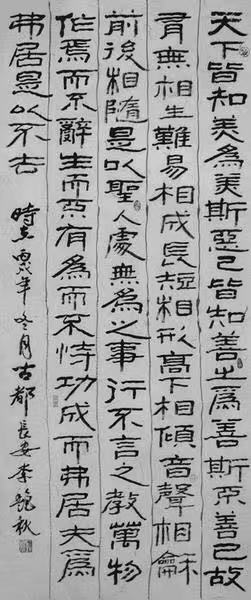 天下皆知美為美斯惡已皆知善之為善斯不善已故
有無相生難易相成長短相形高下相傾音聲相龢
前後相隨是以聖人處無為之事行不言之教萬物
作焉而不辭生而不有為而不恃功成而弗居夫為
弗居是以不去
時在丙戌年冬月古都長安李